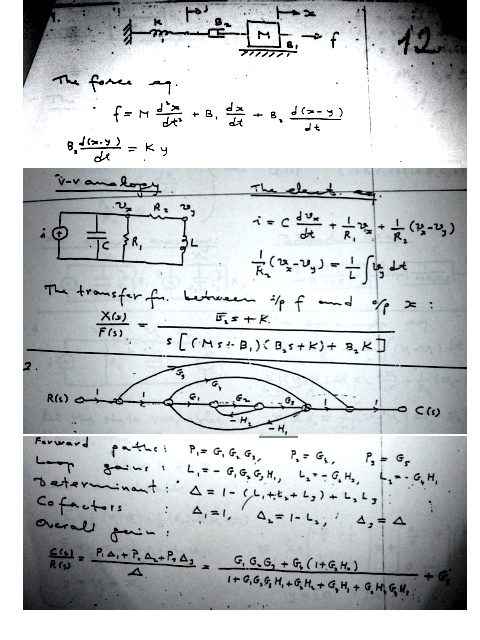 K
y
B₂
x
M
B₁
f
12
The force eq.
f = M d²x/dt² + B₁ dx/dt + B₂ d(x-y)/dt
B₂ d(x-y)/dt = K y
i-v analogy
The elect. eq.
vₓ R₂ v_y
i C R₁ L
i = C dvₓ/dt + 1/R₁ vₓ + 1/R₂ (vₓ-v_y)
1/R₂ (vₓ-v_y) = 1/L ∫ v_y dt
The transfer fn. between i/p f and o/p x :
X(s)/F(s) = B₂s + K / s [(Ms + B₁)(B₂s + K) + B₂K]
2.
G₅
G₄
R(s) 1 1 G₁ G₂ G₃ 1 1 C(s)
-H₂
-H₁
Forward paths: P₁ = G₁G₂G₃, P₂ = G₄, P₃ = G₅
Loop gains: L₁ = - G₁G₂G₃H₁, L₂ = - G₂H₂, L₃ = - G₄H₁
Determinant: Δ = 1 - (L₁ + L₂ + L₃) + L₂L₃
Cofactors : Δ₁ = 1, Δ₂ = 1 - L₂, Δ₃ = Δ
Overall gain :
C(s)/R(s) = P₁Δ₁ + P₂Δ₂ + P₃Δ₃ / Δ = G₁G₂G₃ + G₄(1 + G₂H₂) / 1 + G₁G₂G₃H₁ + G₂H₂ + G₄H₁ + G₂H₂G₄H₁ + G₅